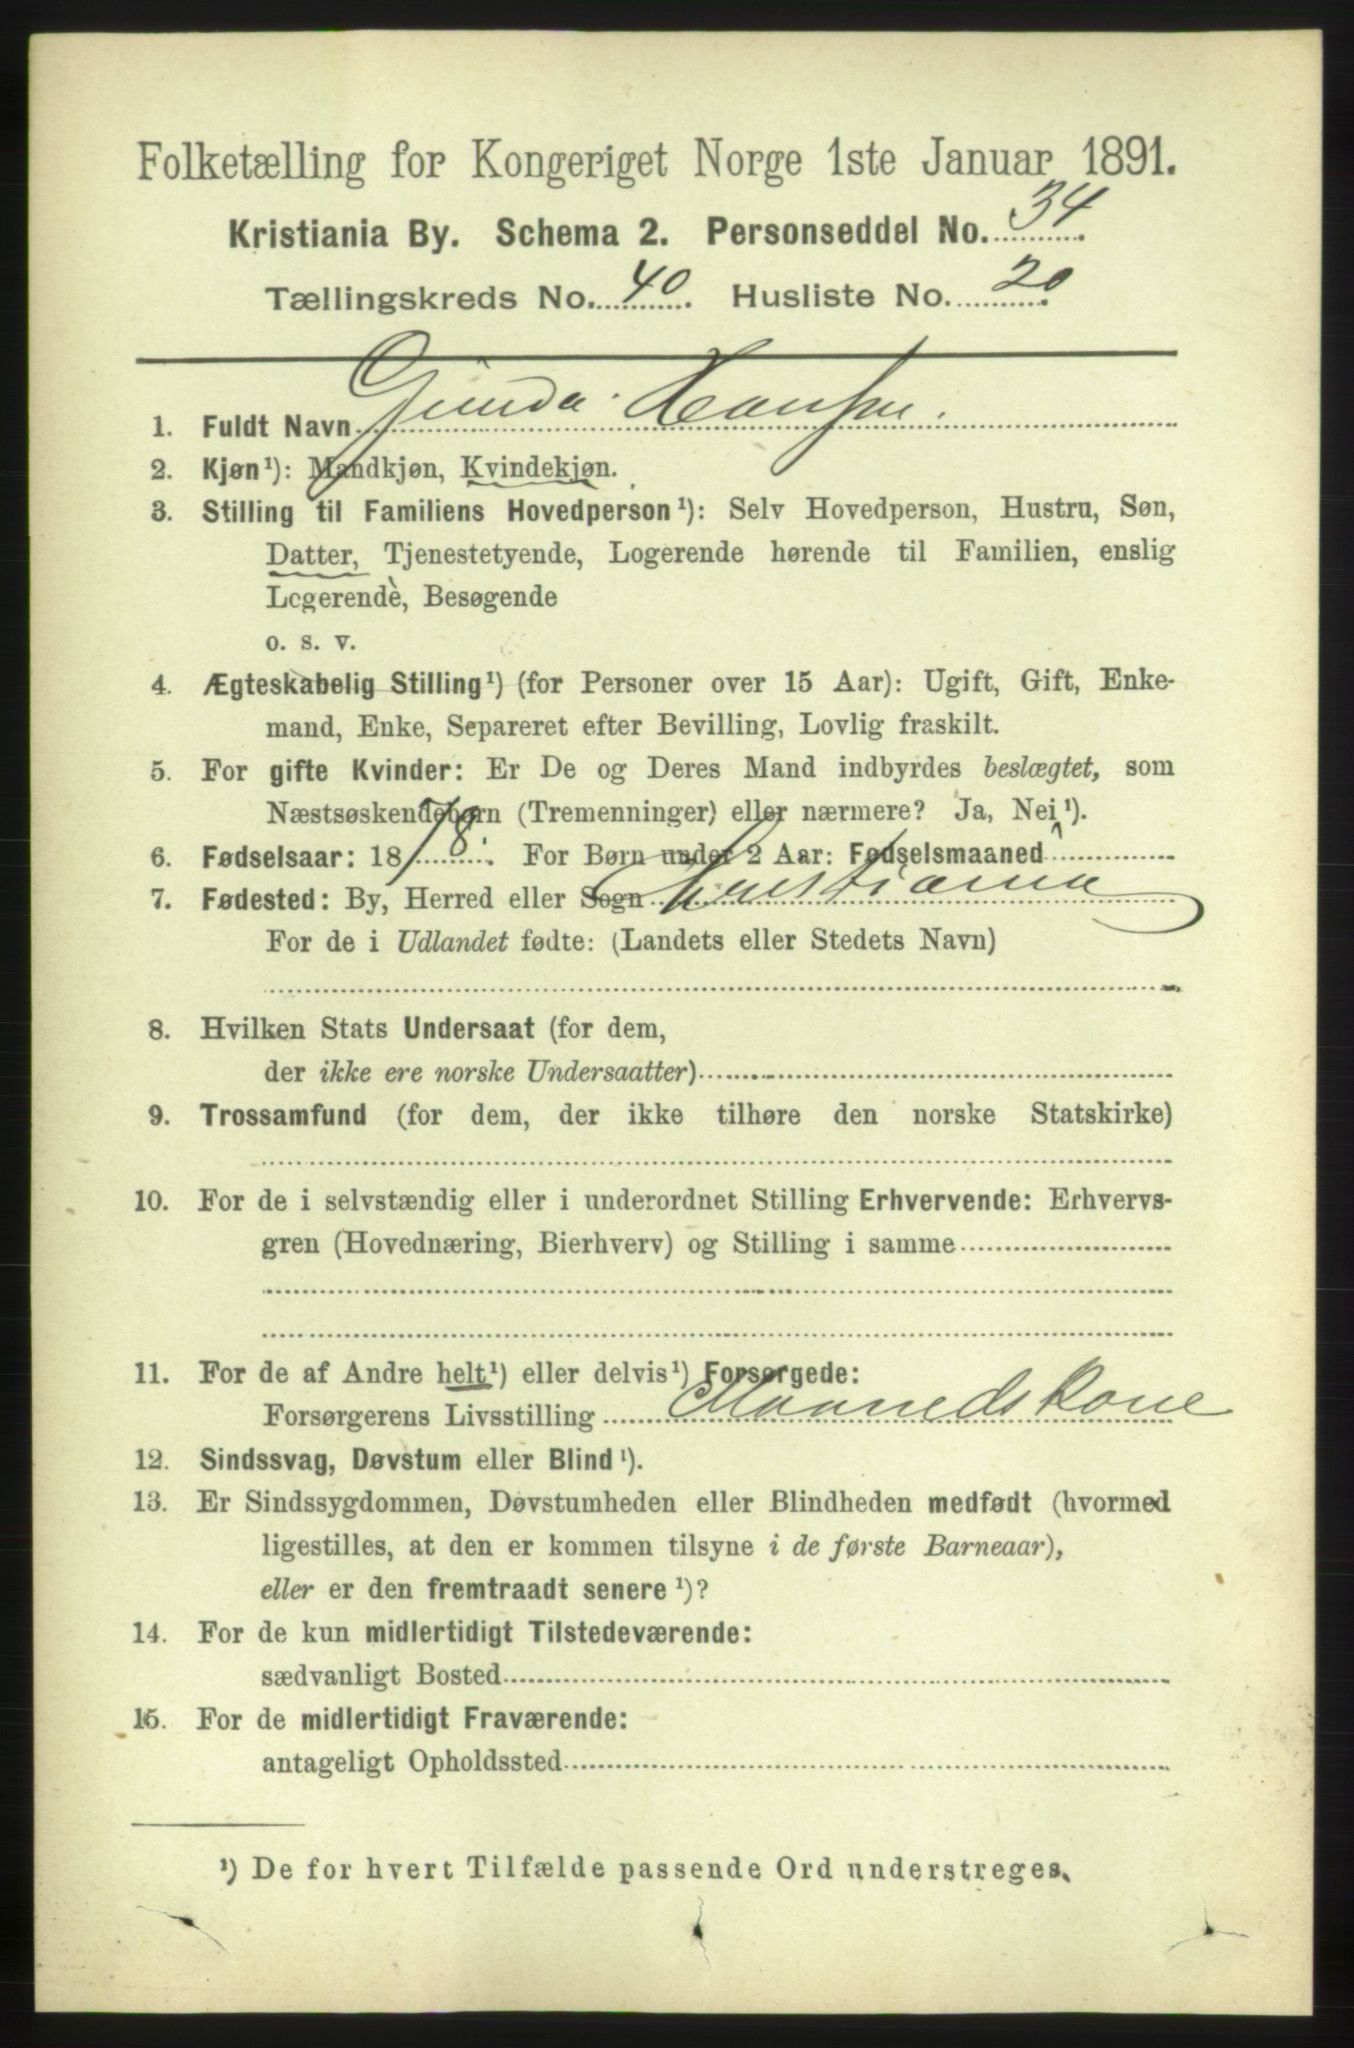 Folketælling for Kongeriget Norge 1ste Januar 1891.
Kristiania By. Schema 2. Personseddel No. 34.
Tællingskreds No. 40. Husliste No. 20.
1. Fuldt Navn Gunda Hansen.
2. Kjøn¹): Mandkjøn, Kvindekjøn.
3. Stilling til Familiens Hovedperson¹): Selv Hovedperson, Hustru, Søn,
Datter, Tjenestetyende, Logerende hørende til Familien, enslig
Logerende, Besøgende
o. s. v.
4. Ægteskabelig Stilling¹) (for Personer over 15 Aar): Ugift, Gift, Enke-
mand, Enke, Separeret efter Bevilling, Lovlig fraskilt.
5. For gifte Kvinder: Er De og Deres Mand indbyrdes beslægtet, som
Næstsøskendebørn (Tremenninger) eller nærmere? Ja, Nei¹).
6. Fødselsaar: 1878. For Børn under 2 Aar: Fødselsmaaned
7. Fødested: By, Herred eller Sogn Kristiania
For de i Udlandet fødte: (Landets eller Stedets Navn)
8. Hvilken Stats Undersaat (for dem,
der ikke ere norske Undersaatter)
9. Trossamfund (for dem, der ikke tilhøre den norske Statskirke)
10. For de i selvstændig eller i underordnet Stilling Erhvervende: Erhvervs-
gren (Hovednæring, Bierhverv) og Stilling i samme
11. For de af Andre helt¹) eller delvis¹) Forsørgede:
Forsørgerens Livsstilling Maanedskone
12. Sindssvag, Døvstum eller Blind¹).
13. Er Sindssygdommen, Døvstumheden eller Blindheden medfødt (hvormed
ligestilles, at den er kommen tilsyne i de første Barneaar),
eller er den fremtraadt senere¹)?
14. For de kun midlertidigt Tilstedeværende:
sædvanligt Bosted
15. For de midlertidigt Fraværende:
antageligt Opholdssted
¹) De for hvert Tilfælde passende Ord understreges.